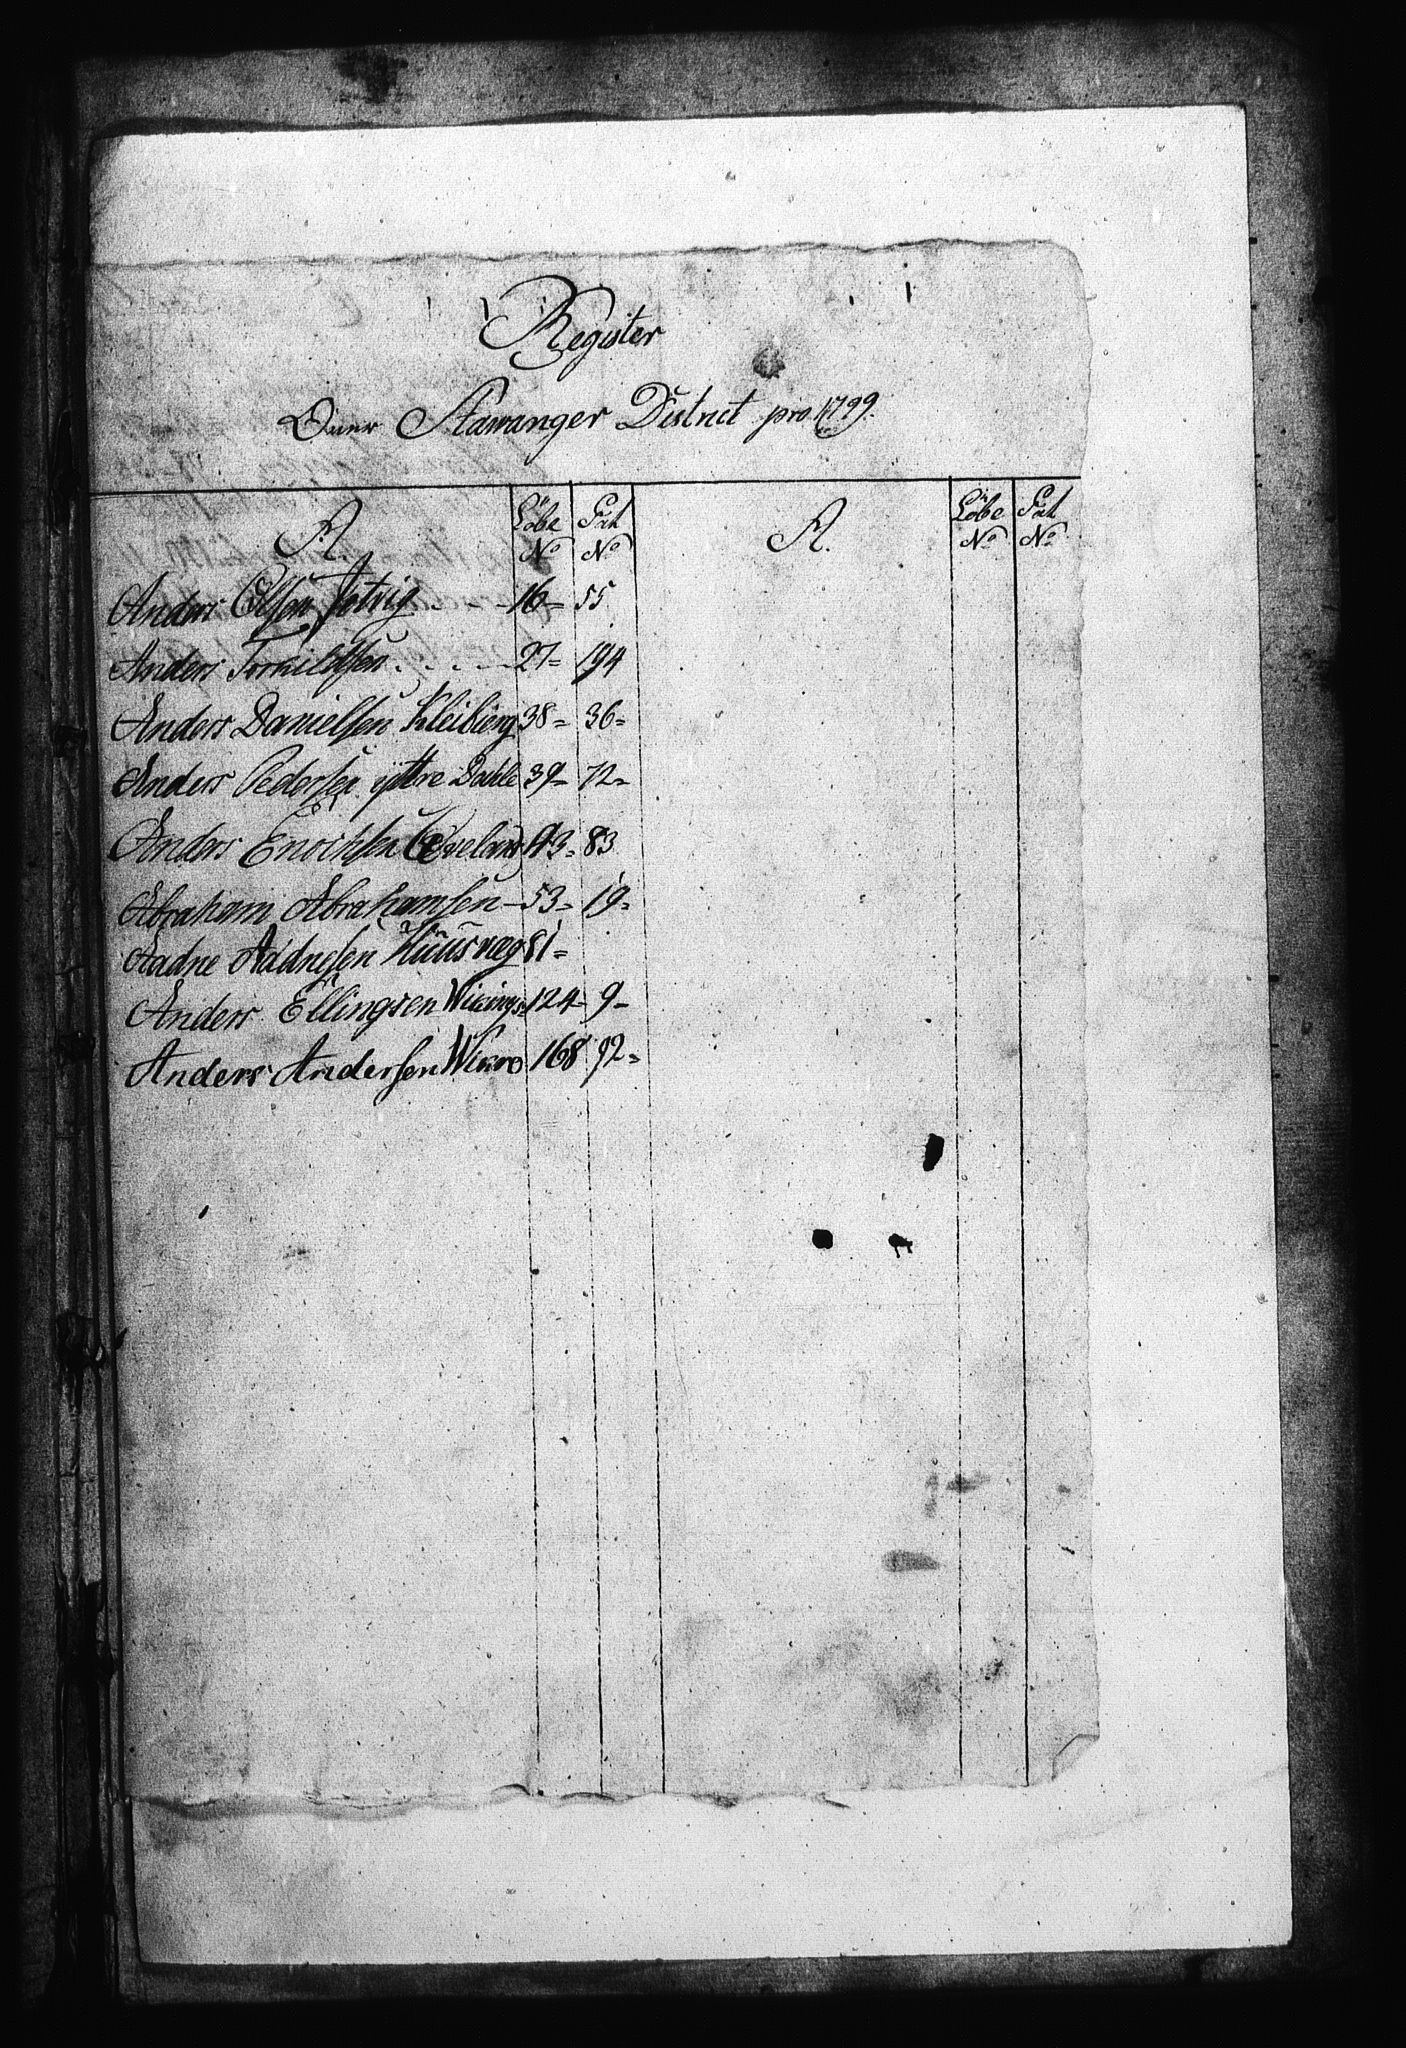 Register
Over Stawanger District pro 1799.
A. Löbe No Pat No A. Löbe No Pat No
Anders Olsen Jotvig 16 = 55
Anders Torkildsen 27 = 194
Anders Danielsen Kleibierg 38 = 36 =
Anders Pedersen yttre Dahle 39 - 72 =
Anders Enochsen 43 = 83
Abraham Abrahamsen - 53 = 19 =
Aadne Aadnesen Huusvog 81 =
Anders Ellingsen Wigings 124 - 9 -
Anders Andersen 168 92 =